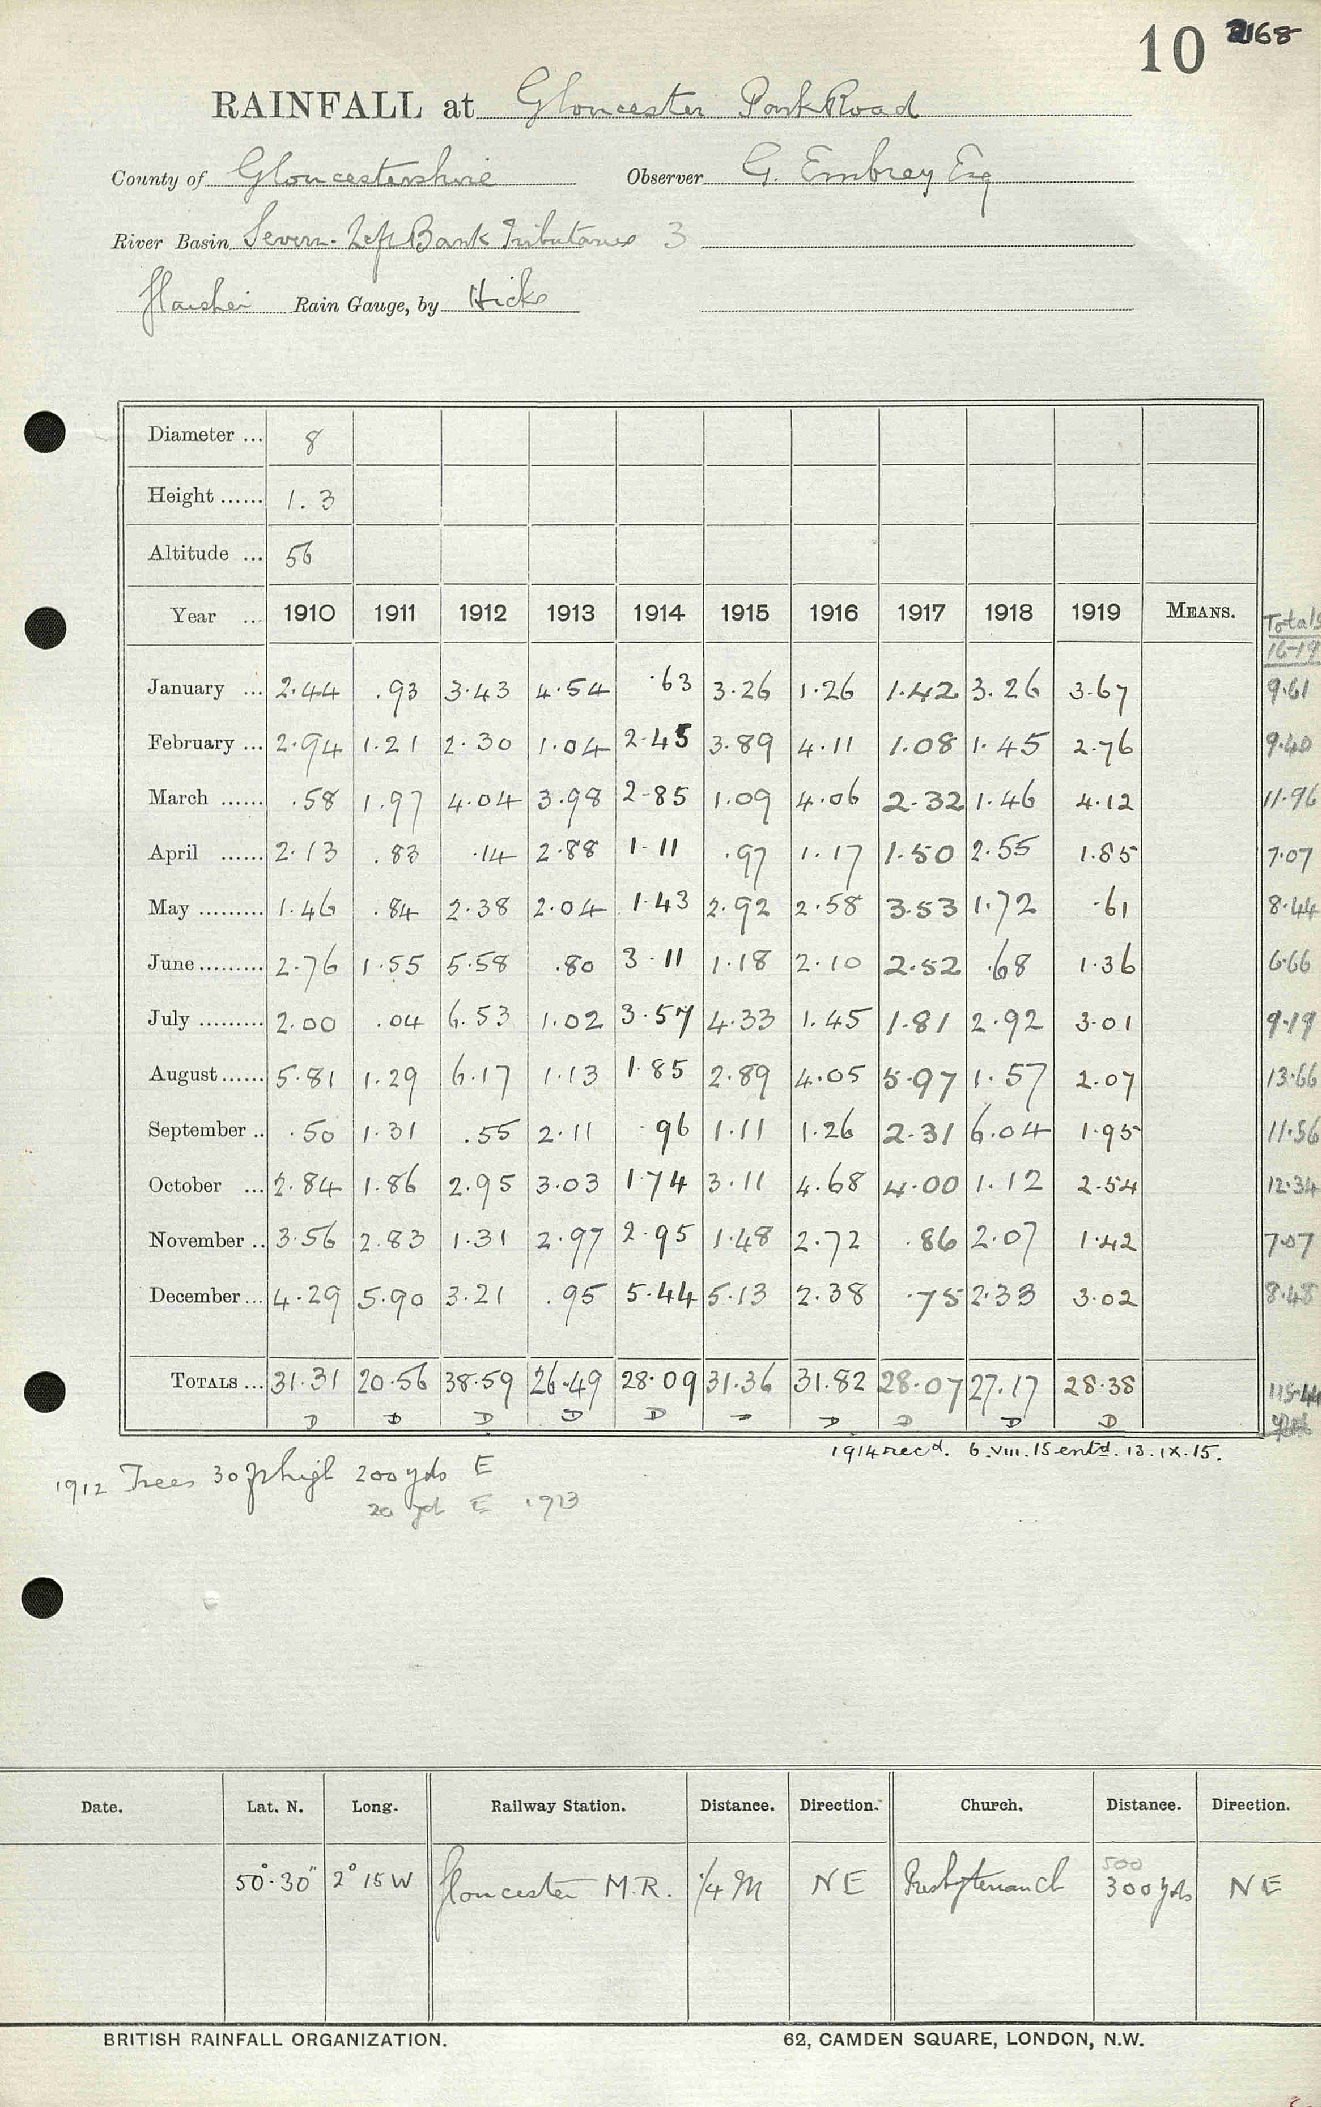 10 2168
RAINFALL at Gloucester Park Road
County of Gloucestershire Observer G. Embrey Esq
River Basin Severn-Left Bank Tributaries 3
Glaisher Rain Gauge, by Hicks
Diameter ... 8
Height ...... 1.3
Altitude ... 56
Year ... 1910 1911 1912 1913 1914 1915 1916 1917 1918 1919 MEANS. Totals
16-19
January ... 2.44 .93 3.43 4.54 .63 3.26 1.26 1.42 3.26 3.67 9.61
February ... 2.94 1.21 2.30 1.04 2.45 3.89 4.11 1.08 1.45 2.76 9.40
March ...... .58 1.97 4.04 3.98 2.85 1.09 4.06 2.32 1.46 4.12 11.96
April ...... 2.13 .83 .14 2.88 1.11 .97 1.17 1.50 2.55 1.85 7.07
May ......... 1.46 .84 2.38 2.04 1.43 2.92 2.58 3.53 1.72 .61 8.44
June ......... 2.76 1.55 5.58 .80 3.11 1.18 2.10 2.52 .68 1.36 6.66
July ......... 2.00 .04 6.53 1.02 3.57 4.33 1.45 1.81 2.92 3.01 9.19
August ...... 5.81 1.29 6.17 1.13 1.85 2.89 4.05 5.97 1.57 2.07 13.66
September .. .50 1.31 .55 2.11 .96 1.11 1.26 2.31 6.04 1.95 11.56
October ... 2.84 1.86 2.95 3.03 1.74 3.11 4.68 4.00 1.12 2.54 12.34
November .. 3.56 2.83 1.31 2.97 2.95 1.48 2.72 .86 2.07 1.42 7.07
December ... 4.29 5.90 3.21 .95 5.44 5.13 2.38 .75 2.33 3.02 8.48
TOTALS ... 31.31 20.56 38.59 26.49 28.09 31.36 31.82 28.07 27.17 28.38 115.44
D D D D D D D D D D
1914 recd. 6.VIII.15 entd. 13.IX.15.
1912 Trees 30 ft high 200 yds E
20 yd E 1913
Date. Lat. N. Long. Railway Station. Distance. Direction. Church. Distance. Direction.
500
50°.30" 2° 15 W Gloucester M.R. 1/4 M NE Presbyterian Ch 300 yds NE
BRITISH RAINFALL ORGANIZATION. 62, CAMDEN SQUARE, LONDON, N.W.